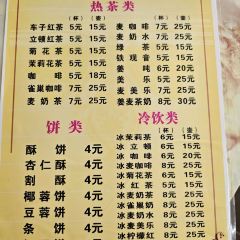 热茶类
(杯) (壶)
车子红茶 5元 15元
立顿红茶 5元 15元
菊花茶 5元 15元
茉莉花茶 5元 15元
咖啡 5元 18元
雀巢咖啡 7元 25元
麦奶茶 7元 25元
(杯) (壶)
麦咖啡 7元 25元
麦奶水 7元 25元
绿茶 5元 15元
铁观音 5元 15元
姜吨 6元 20元
美乐 6元 20元
美乐 7元 25元
姜麦茶奶 8元 30元
饼类
酥饼 4元
杏仁酥 4元
割酥 4元
椰蓉饼 4元
豆蓉饼 4元
条饼 4元
冷饮类
(杯) (壶)
冰茉莉茶 6元 15元
冰立顿 6元 15元
冰咖啡 6元 20元
冰麦咖啡 8元 25元
冰菊花茶 6元 15元
冰红茶 6元 15元
冰麦奶茶 8元 25元
冰雀巢奶 8元 25元
冰麦奶水 8元 25元
冰美乐 8元 25元
冰柠檬红